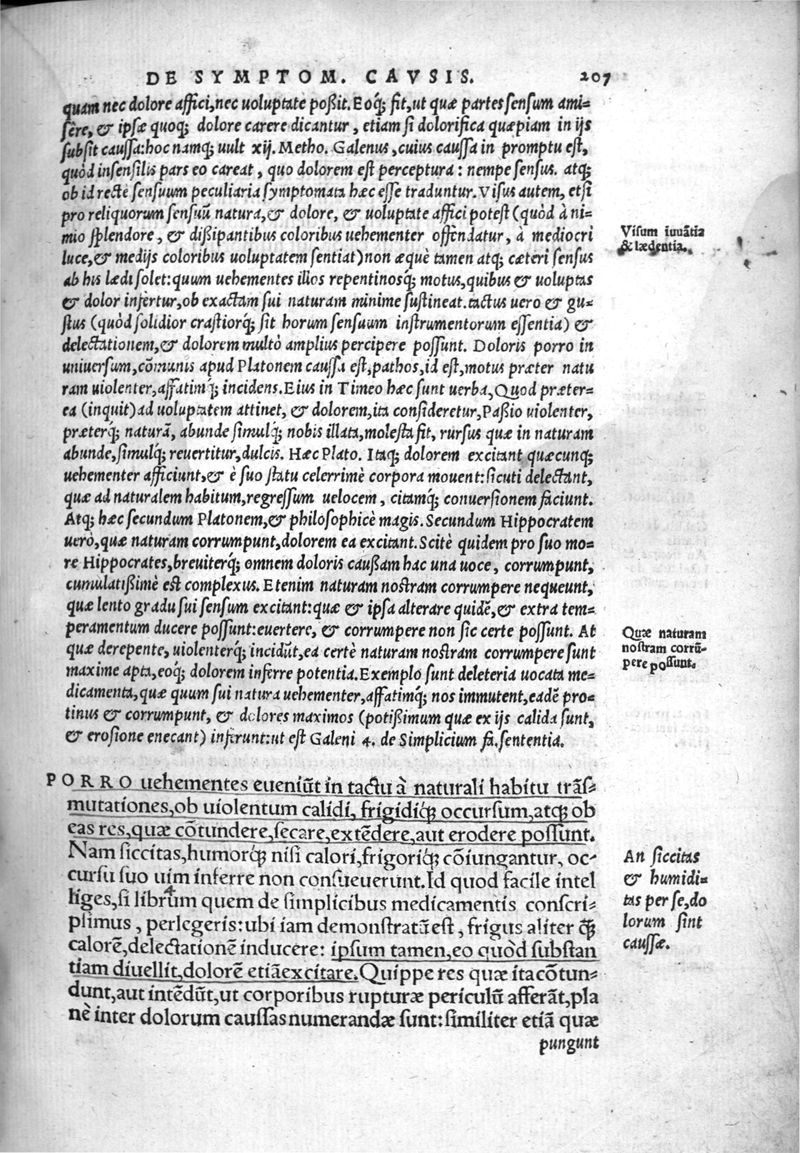 DE SYMPTOM. CAVSIS. 207
quam nec dolore affici, nec uoluptate poßit. Eoq; fit, ut quæ partes sensum ami=
sêre, & ipsæ quoq; dolore carere dicantur, etiam si dolorifica quæpiam in ijs
subsit caussa: hoc namq; uult xij. Metho. Galenus, cuius caussa in promptu est,
quòd insensilis pars eo careat, quo dolorem est perceptura: nempe sensus. atq;
ob id recte sensuum peculiaria symptomata hæc esse traduntur. Visus autem, etsi
pro reliquorum sensuũ natura, & dolore, & uoluptate affici potest (quòd à ni=
mio splendore, & dißipantibus coloribus uehementer offendatur, à mediocri
luce, & medijs coloribus uoluptatem sentiat) non æquè tamen atq; cæteri sensus
ab his lædi solet: quum uehementes illos repentinosq; motus, quibus & uoluptas
& dolor infertur, ob exactam sui naturam minime sustineat. tactus uero & gu=
stus (quòd solidior crastiorq; sit horum sensuum instrumentorum essentia) &
delectationem, & dolorem multò amplius percipere possunt. Doloris porro in
uniuersum, cõmunis apud Platonem caussa est, pathos, id est, motus præter natu
ram uiolenter, affatimq; incidens. Eius in Timeo hæc sunt uerba, Quod præter=
ea (inquit) ad uoluptatem attinet, & dolorem, ita consideretur, Paßio uiolenter,
præterq; naturã, abunde simulq; nobis illata, molesta fit, rursus quæ in naturam
abunde, simulq; reuertitur, dulcis. Hæc Plato. Itaq; dolorem excitant quæcunq;
uehementer afficiunt, & è suo statu celerrimè corpora mouent: sicuti delectant,
quæ ad naturalem habitum, regressum uelocem, citamq; conuersionem faciunt.
Atq; hæc secundum Platonem, & philosophicè magis. Secundum Hippocratem
uerò, quæ naturam corrumpunt, dolorem ea excitant. Scitè quidem pro suo mo=
re Hippocrates, breuiterq; omnem doloris caußam hac una uoce, corrumpunt,
cumulatißimè est complexus. Etenim naturam nostram corrumpere nequeunt,
quæ lento gradu sui sensum excitant: quæ & ipsa alterare quidẽ, & extra tem=
peramentum ducere possunt: euertere, & corrumpere non sic certe possunt. At
quæ derepente, uiolenterq; incidũt, ea certè naturam nostram corrumpere sunt
maxime apta, eoq; dolorem inferre potentia. Exemplo sunt deleteria uocata me=
dicamenta, quæ quum sui natura uehementer, affatimq; nos immutent, eadẽ pro=
tinus & corrumpunt, & dolores maximos (potißimum quæ ex ijs calida sunt,
& erosione enecant) inferunt: ut est Galeni 4. de Simplicium fa. sententia.
Visum iuuãtia
& lædentia.
Quæ naturam
nostram corrũ=
pere possunt.
PORRO uehementes eueniũt in tactu à naturali habitu trãs=
mutationes, ob uiolentum calidi, frigidiq; occursum, atq; ob
eas res, quæ cõtundere, secare, extẽdere, aut erodere possunt.
Nam siccitas, humorq; nisi calori, frigoriq; cõiungantur, oc=
cursu suo uim inferre non consueuerunt. Id quod facile intel
liges, si librum quem de simplicibus medicamentis conscri=
plimus, perlegeris: ubi iam demonstratã est, frigus aliter q̃
calorẽ, delectationẽ inducere: ipsum tamen, eo quòd substan
tiam diuellit, dolorẽ etiã excitare. Quippe res quæ ita cõtun=
dunt, aut intẽdũt, ut corporibus rupturæ periculũ afferãt, pla
nè inter dolorum caussas numerandæ sunt: similiter etiã quæ
pungunt
An siccitas
& humidi=
tas per se, do
lorum sint
caussæ.